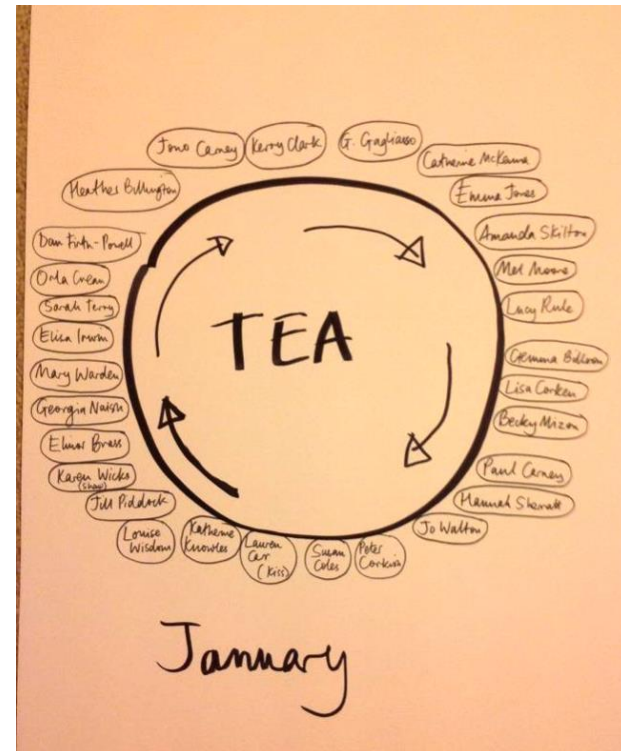 Jono Carney
Kerry Clark
G. Gagliasso
Catherine McKenna
Emma Jones
Amanda Skilton
Mel Moore
Lucy Rule
Gemma
Lisa Corken
Becky Mizon
Paul Carney
Hannah
Jo Walton
Peter
Corkish
Susan
Coles
Lauren
Car
(Kiss)
Katherine
Knowles
Louise
Wisdom
Jill Piddock
Karen Wicks
(Shaw)
Elinor Brass
Georgia Naish
Mary Warden
Elisa Irwin
Sarah Terry
Orla Crean
Dan Firth-Powell
Heather Billington
TEA
January